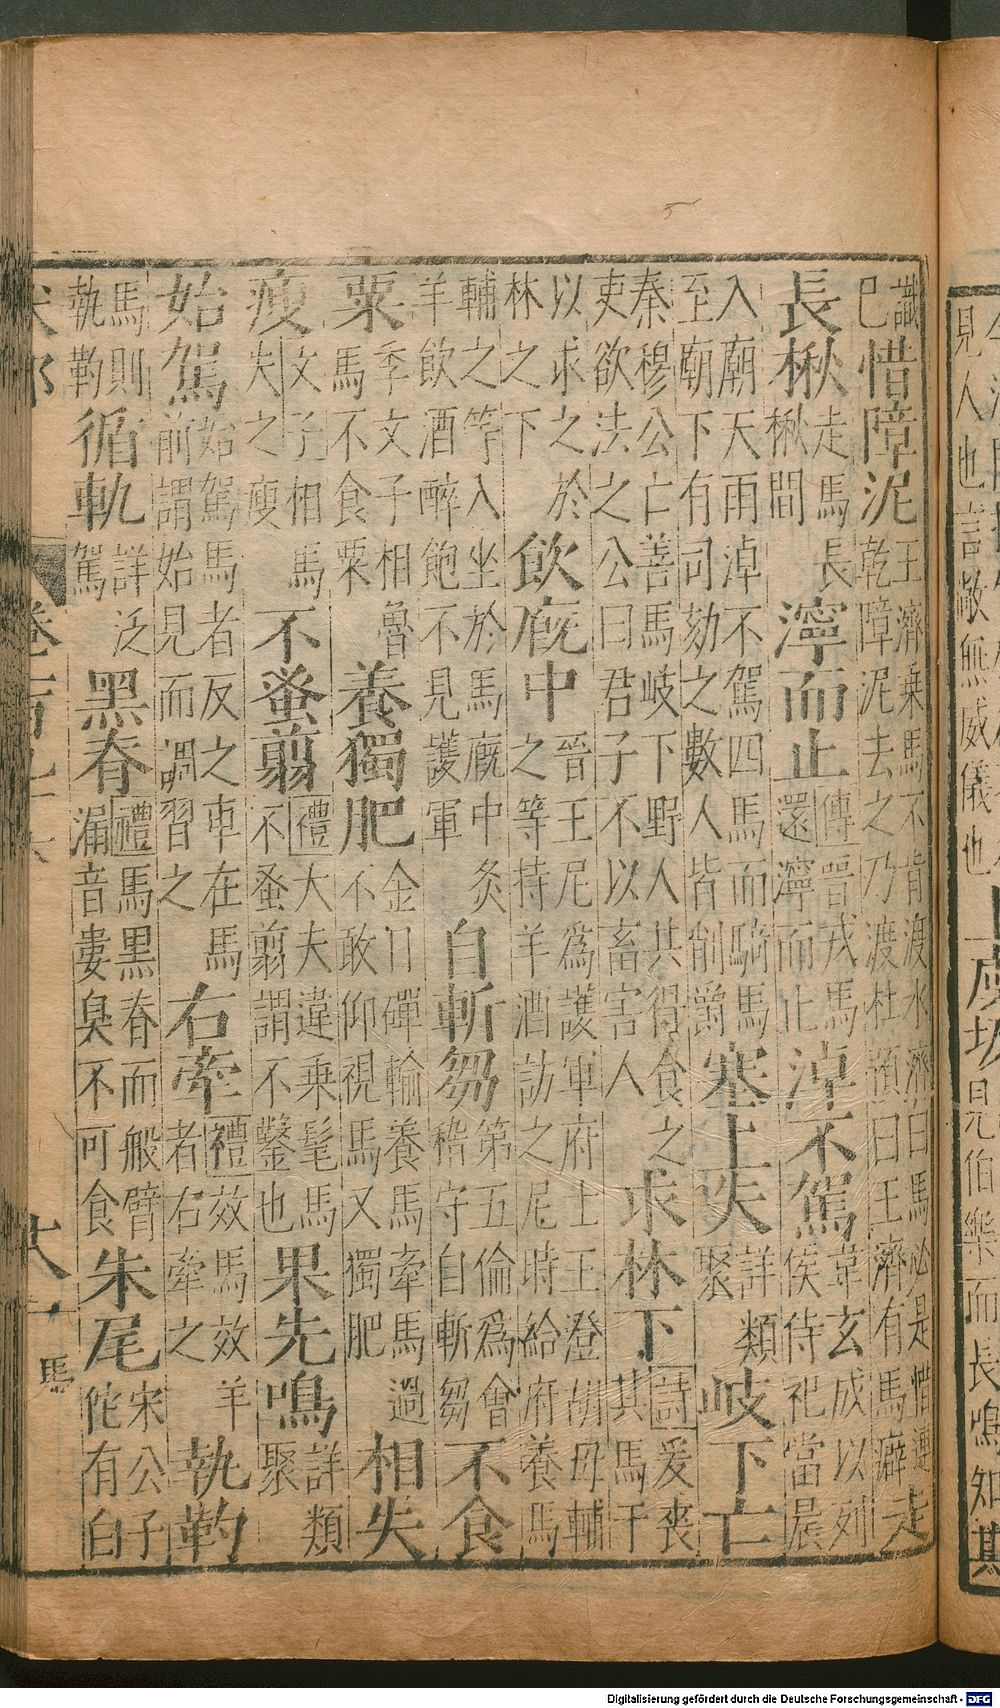 識已惜障泥王濟乗馬不肯渡水濟曰馬必是惜連乾障泥去之乃渡杜預曰王濟有馬癖走
長楸走馬長楸間濘而止傳晉戎馬還濘而止淖不駕韋玄成以列侯待祀當晨
入廟天雨淖不駕四馬而騎馬至廟下有司劾之數人皆削爵塞上失詳類聚岐下亡
秦穆公亡善馬岐下野人共得食之吏欲法之公曰君子不以畜害人求林下詩爰喪其馬于
以求之於林之下飲廐中晉王尼爲護軍府士王澄胡毋輔之等持羊酒訪之尼時給府養馬
輔之等入坐於馬廐中炙羊飲酒醉飽不見護軍自斬芻第五倫爲會稽守自斬芻不食
粟季文子相魯馬不食粟養獨肥金日磾輸養馬牽馬過不敢仰視馬又獨肥相失
瘦文子相馬失之瘦不蚤翦禮大夫違乗髦馬不蚤翦謂不鑿也果先鳴詳類聚
始駕始駕馬者反之車在馬前謂始見而調習之右牽禮效馬效羊者右牽之執靮
馬則執靮循軌詳泛駕黑脊禮馬黑脊而般臂漏音婁臭不可食朱尾宋公子佗有白
馬
見人也言敵無威儀也
虞坂見伯樂而長鳴知其
Digitalisierung gefördert durch die Deutsche Forschungsgemeinschaft - DFG